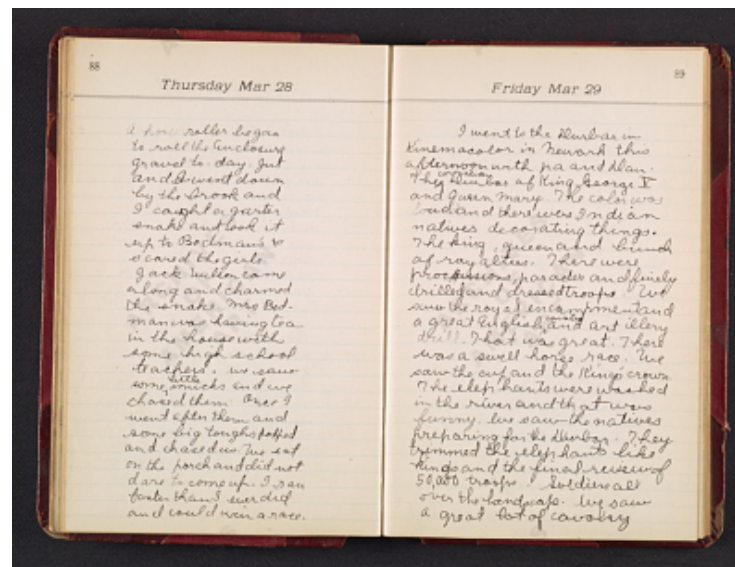 88
Thursday Mar 28
a roller began
to roll the enclosure
gravel to-day. Jut
and I went down
by the brook and
I caught a garter
snake and took it
up to Bodman's &
scared the girls.
Jack Wilson came
along and charmed
the snake. Mrs Bod-
man was having tea
in the house with
some high school
teachers. We saw
some little micks and we
chased them. Once I
went after them and
some big toughs popped
and chased us. We sat
on the porch and did not
dare to come up. I ran
faster than I ever did
and could win a race.
89
Friday Mar 29
I went to the Durbar in
Kinemacolor in Newark this
afternoon with pa and Dan.
The Durbar of coronation King George V
and Queen Mary. The color was
and there were Indian
natives decorating things.
The king, queen and bunch
of royalties. There were
processions, parades and finely
drilled and dressed troops. We
saw the royal encampment and
a great English cavalry and artillery
drill. That was great. There
was a swell horse race. We
saw the cup and the King's crown
The elephants were washed
in the river and that was
funny. We saw the natives
preparing for the Durbar. They
trimmed the elephants like
kings and the final review of
50,000 troops. Soldiers all
over the landscape. We saw
a great lot of cavalry